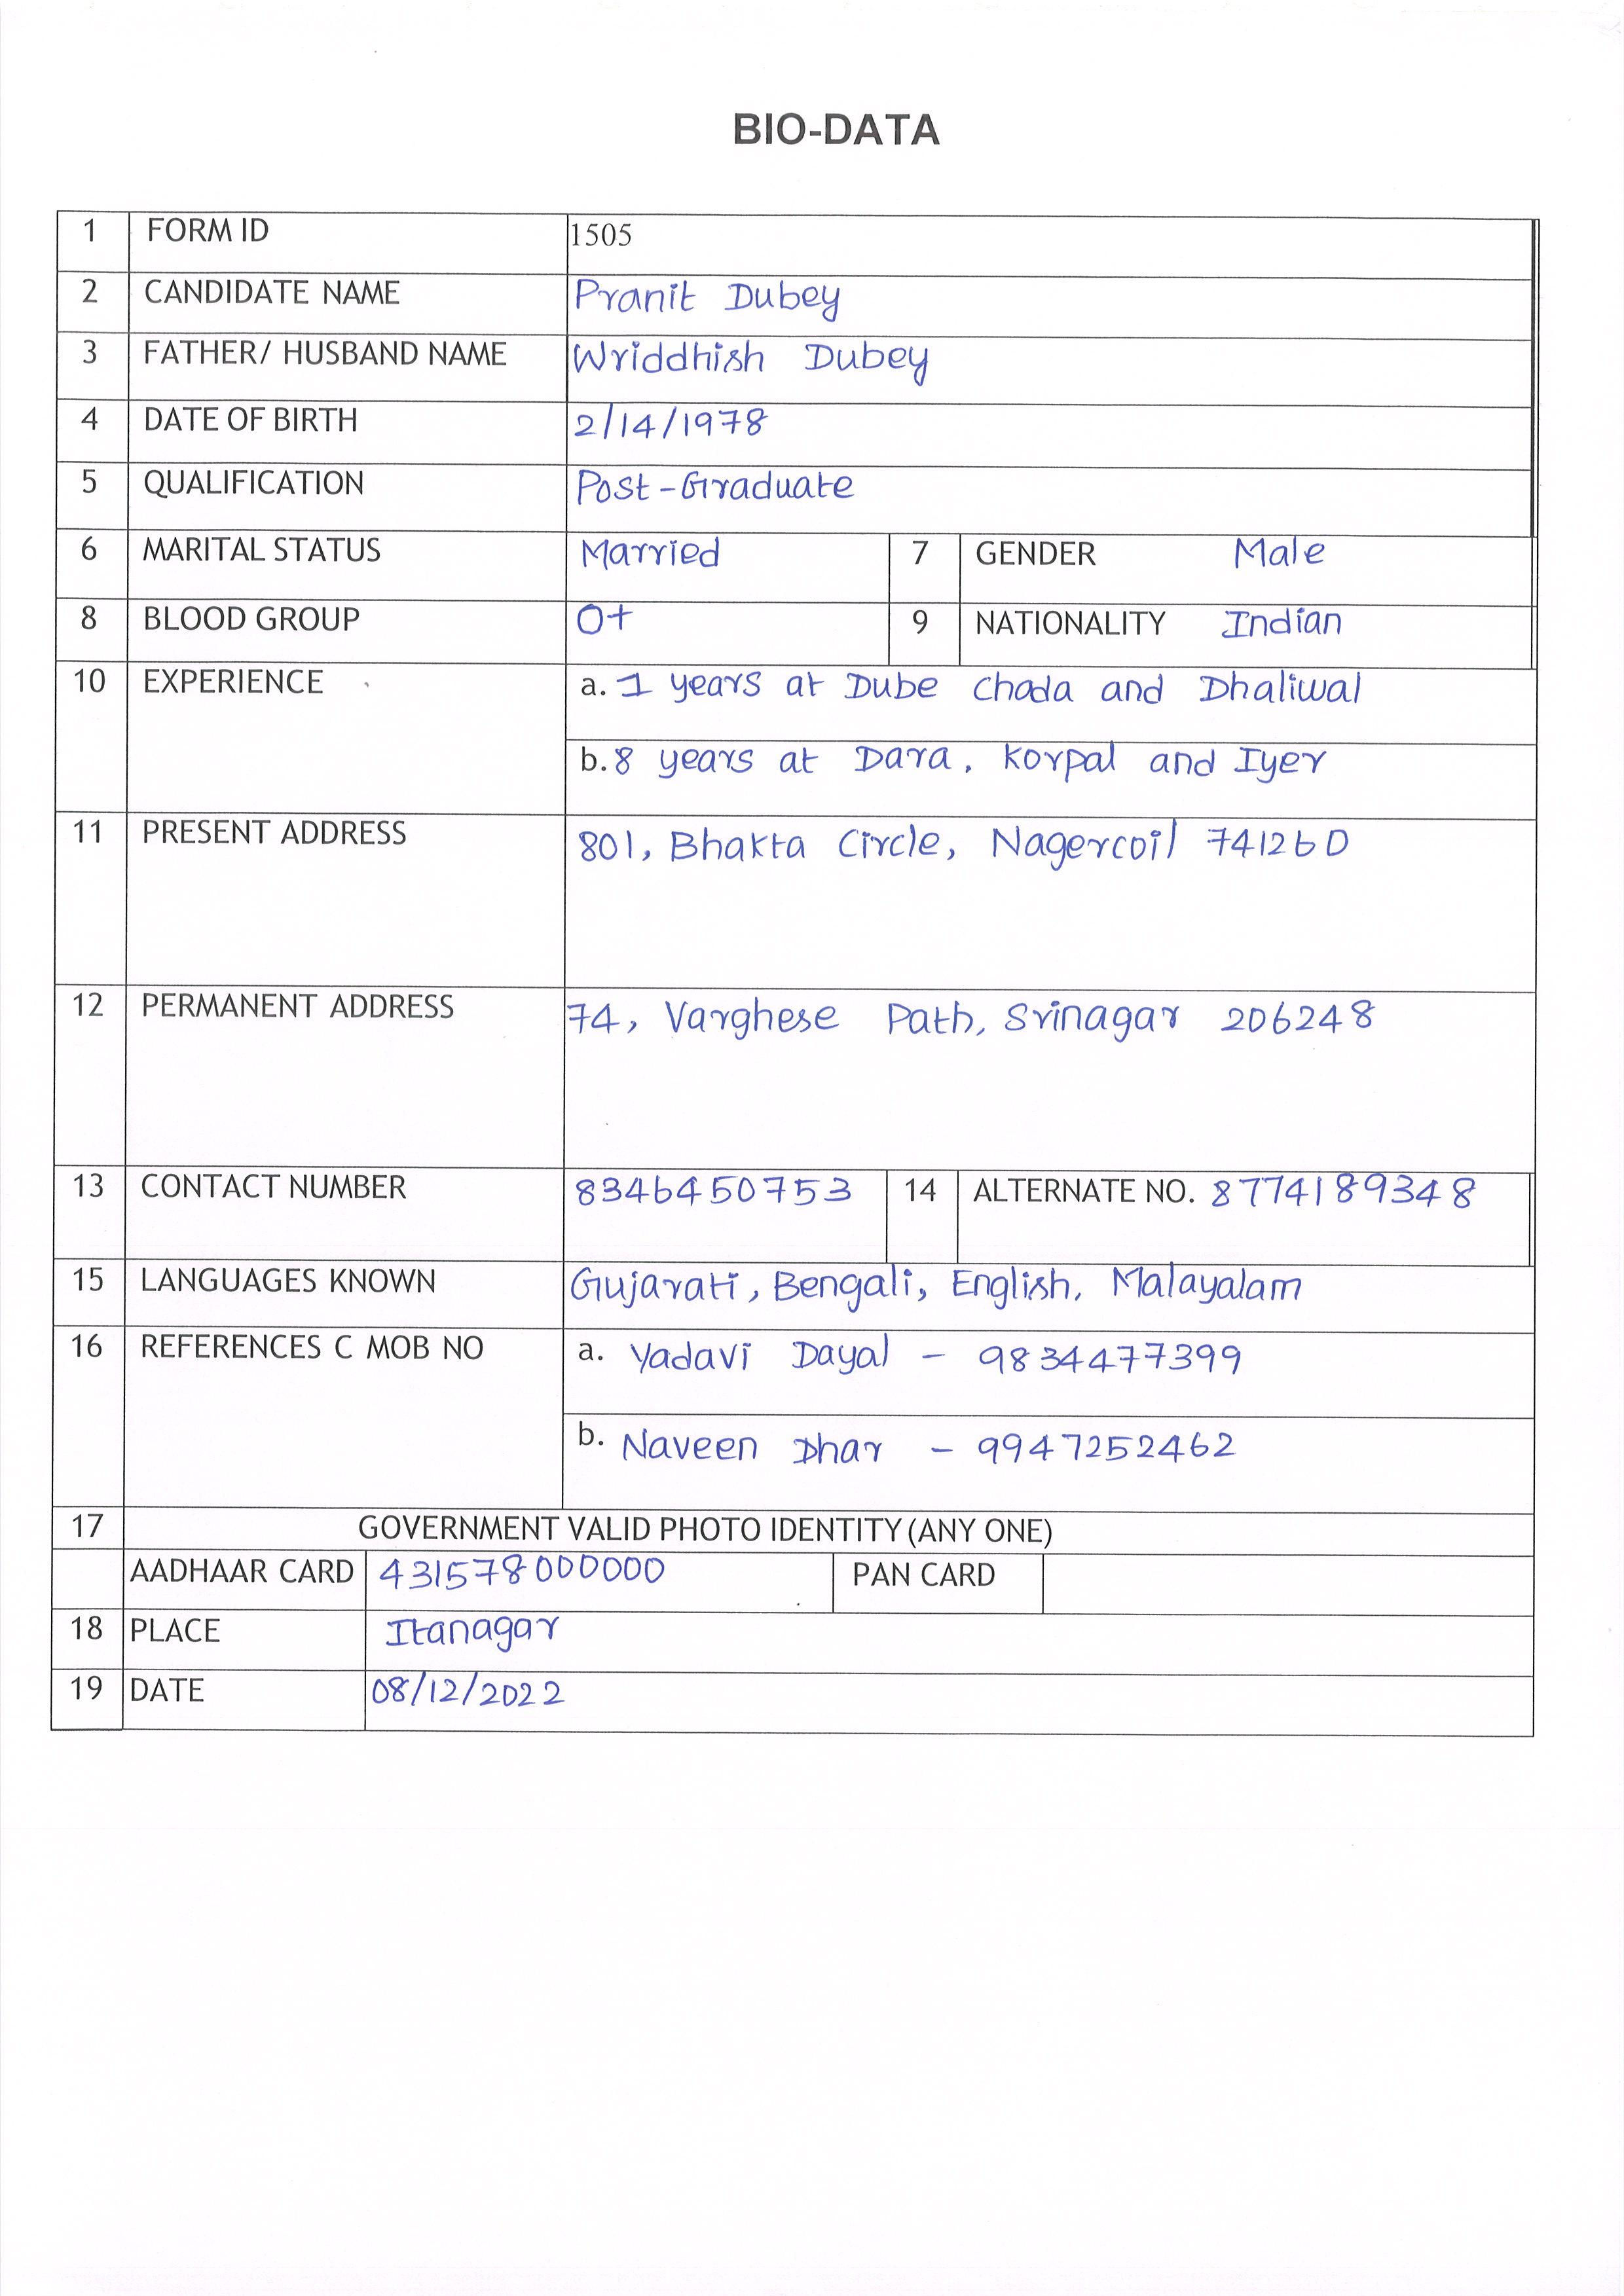 BIO-DATA
1 FORM ID 1505
2 CANDIDATE NAME Pranit Dubey
3 FATHER/ HUSBAND NAME Wriddhish Dubey
4 DATE OF BIRTH 2/14/1978
5 QUALIFICATION Post-Graduate
6 MARITAL STATUS Married 7 GENDER Male
8 BLOOD GROUP O+ 9 NATIONALITY Indian
10 EXPERIENCE a. 1 years at Dube Chada and Dhaliwal
b. 8 years at Dara, Korpal and Iyer
11 PRESENT ADDRESS 801, Bhakta Circle, Nagercoil 741260
12 PERMANENT ADDRESS 74, Varghese Path, Srinagar 206248
13 CONTACT NUMBER 8346450753 14 ALTERNATE NO. 8774189348
15 LANGUAGES KNOWN Gujarati, Bengali, English, Malayalam
16 REFERENCES C MOB NO a. Yadavi Dayal - 9834477399
b. Naveen Dhar - 9947252462
17 GOVERNMENT VALID PHOTO IDENTITY (ANY ONE)
AADHAAR CARD 431578000000 PAN CARD
18 PLACE Itanagar
19 DATE 08/12/2022